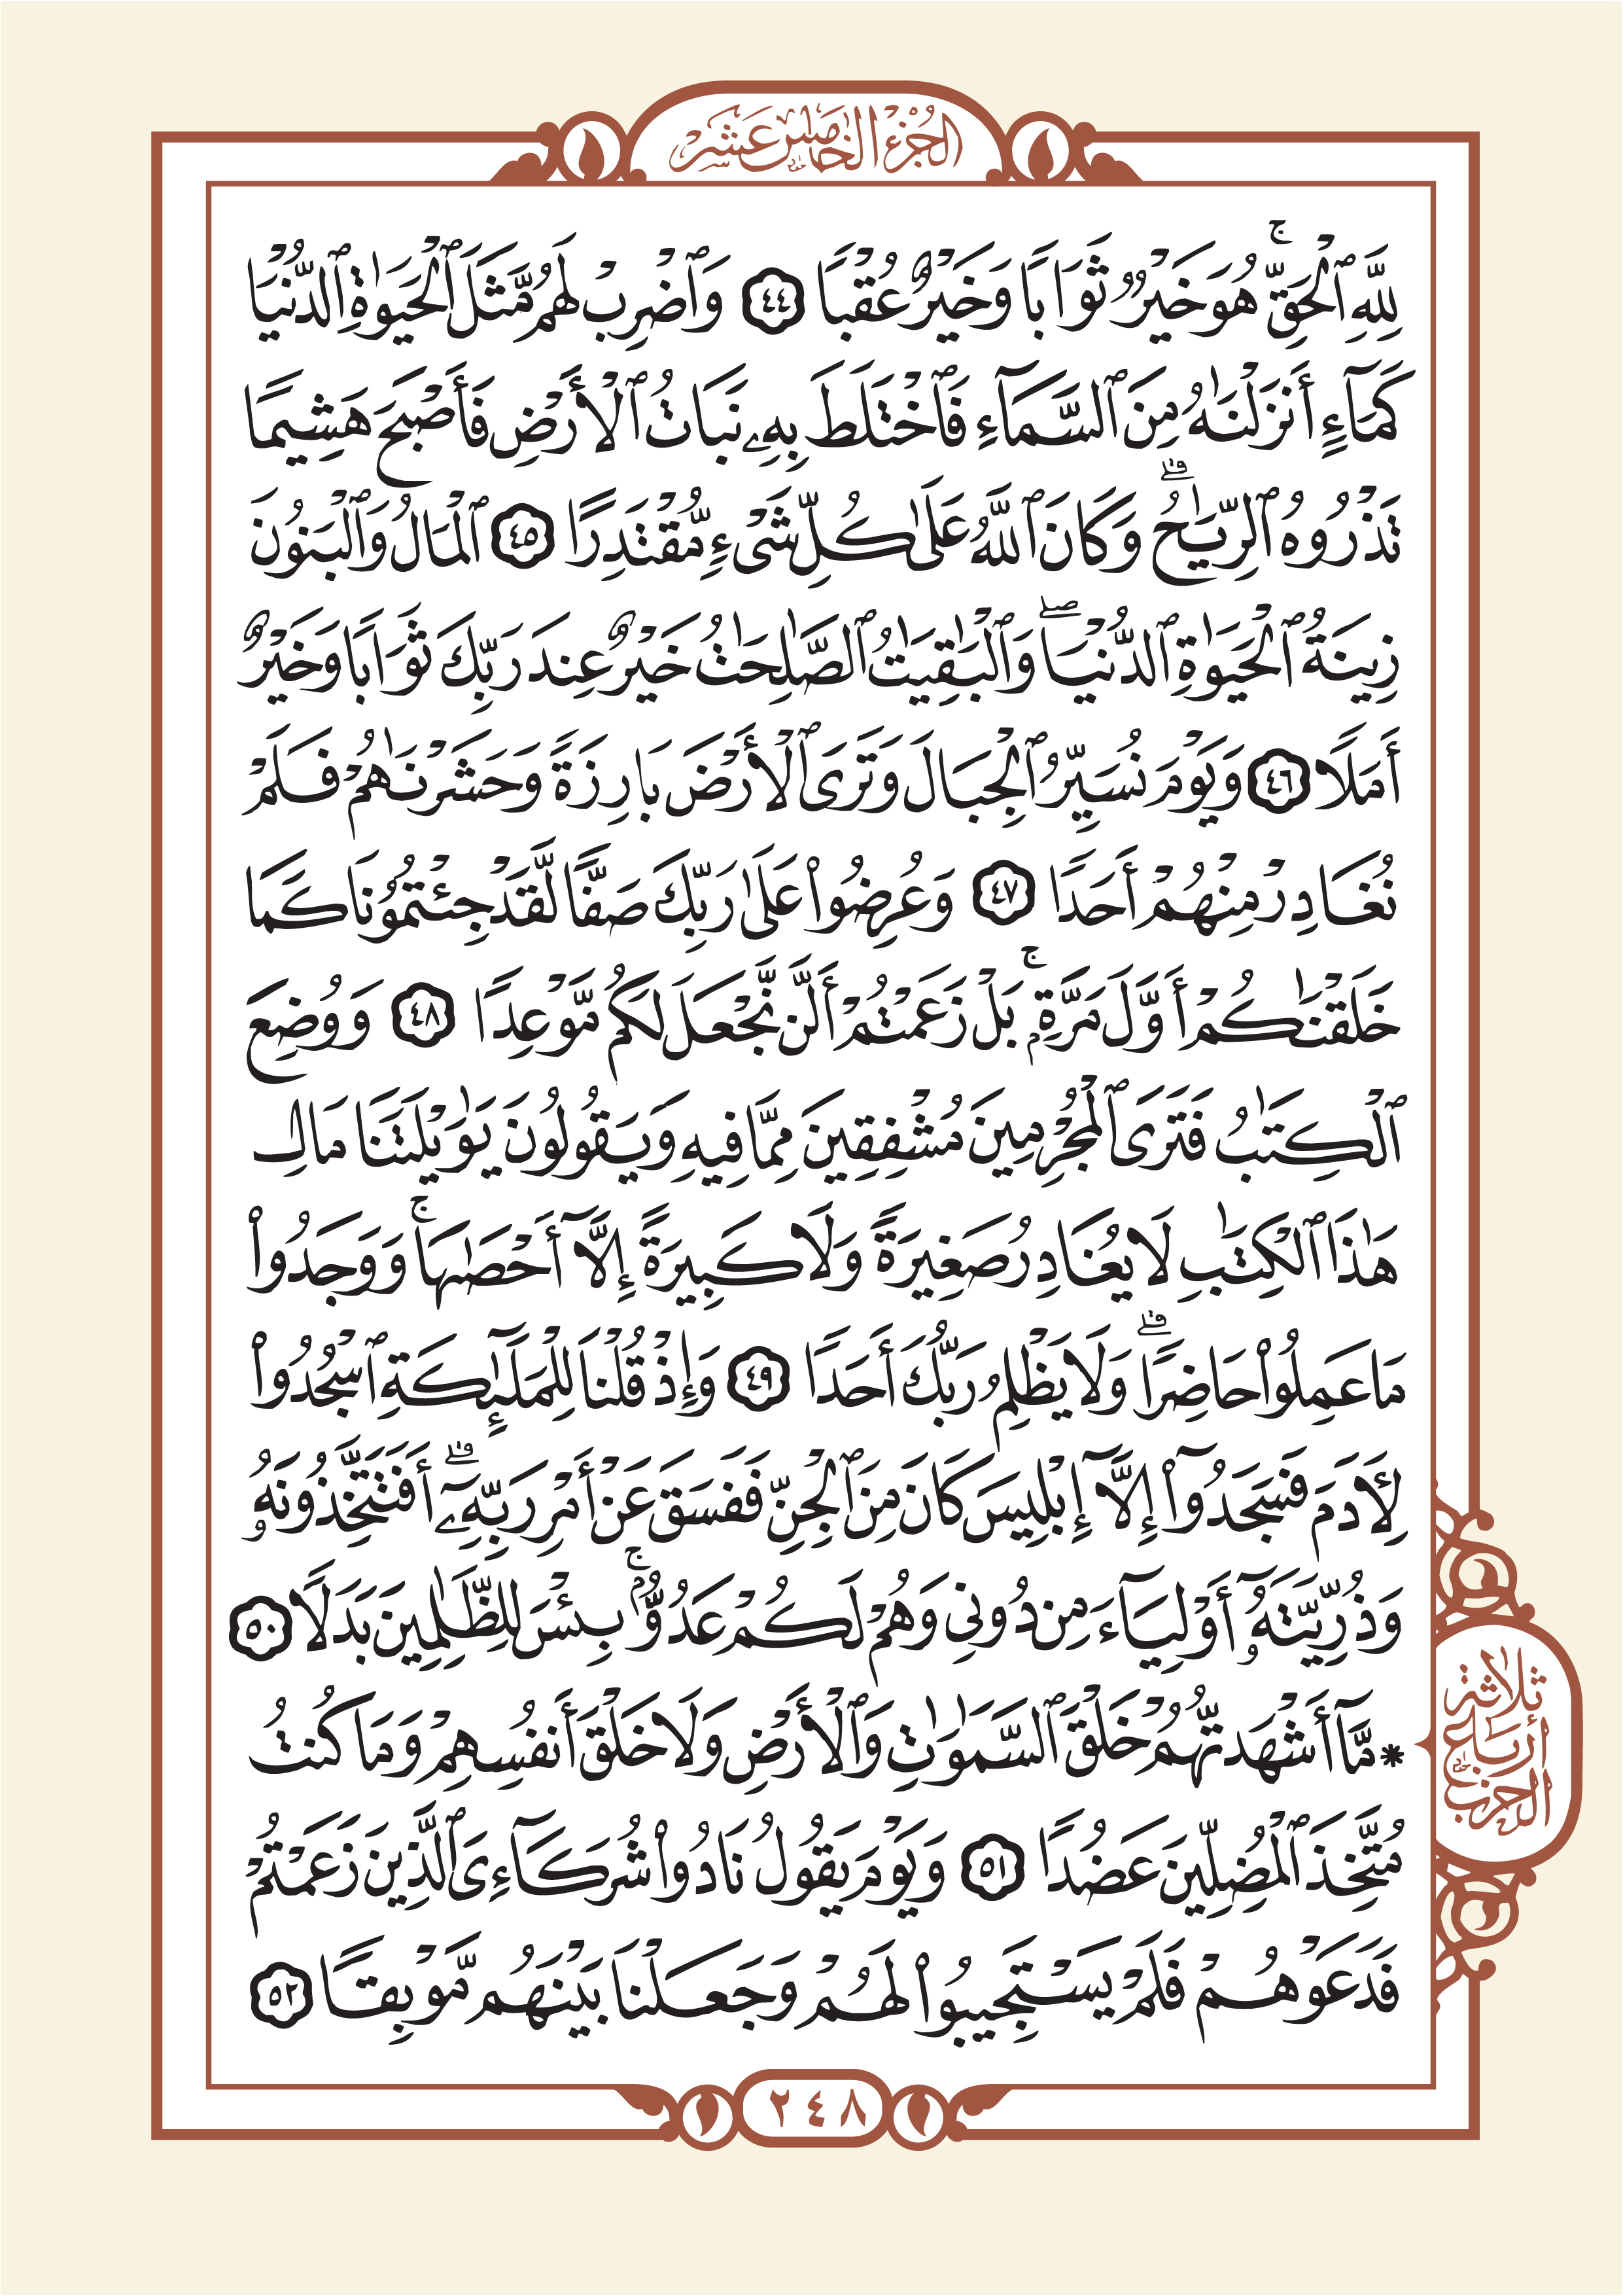 الجزء الخامس عشر
لِلَّهِ ٱلْحَقِّ ۚ هُوَ خَيْرٌ ثَوَابًا وَخَيْرٌ عُقْبًا ٤٤ وَٱضْرِبْ لَهُم مَّثَلَ ٱلْحَيَوٰةِ ٱلدُّنْيَا
كَمَآءٍ أَنزَلْنَٰهُ مِنَ ٱلسَّمَآءِ فَٱخْتَلَطَ بِهِۦ نَبَاتُ ٱلْأَرْضِ فَأَصْبَحَ هَشِيمًا
تَذْرُوهُ ٱلرِّيَٰحُ ۗ وَكَانَ ٱللَّهُ عَلَىٰ كُلِّ شَىْءٍ مُّقْتَدِرًا ٤٥ ٱلْمَالُ وَٱلْبَنُونَ
زِينَةُ ٱلْحَيَوٰةِ ٱلدُّنْيَا ۖ وَٱلْبَٰقِيَٰتُ ٱلصَّٰلِحَٰتُ خَيْرٌ عِندَ رَبِّكَ ثَوَابًا وَخَيْرٌ
أَمَلًا ٤٦ وَيَوْمَ نُسَيِّرُ ٱلْجِبَالَ وَتَرَى ٱلْأَرْضَ بَارِزَةً وَحَشَرْنَٰهُمْ فَلَمْ
نُغَادِرْ مِنْهُمْ أَحَدًا ٤٧ وَعُرِضُوا۟ عَلَىٰ رَبِّكَ صَفًّا لَّقَدْ جِئْتُمُونَا كَمَا
خَلَقْنَٰكُمْ أَوَّلَ مَرَّةٍۭ ۚ بَلْ زَعَمْتُمْ أَلَّن نَّجْعَلَ لَكُم مَّوْعِدًا ٤٨ وَوُضِعَ
ٱلْكِتَٰبُ فَتَرَى ٱلْمُجْرِمِينَ مُشْفِقِينَ مِمَّا فِيهِ وَيَقُولُونَ يَٰوَيْلَتَنَا مَالِ
هَٰذَا ٱلْكِتَٰبِ لَا يُغَادِرُ صَغِيرَةً وَلَا كَبِيرَةً إِلَّآ أَحْصَىٰهَا ۚ وَوَجَدُوا۟
مَا عَمِلُوا۟ حَاضِرًا ۗ وَلَا يَظْلِمُ رَبُّكَ أَحَدًا ٤٩ وَإِذْ قُلْنَا لِلْمَلَٰٓئِكَةِ ٱسْجُدُوا۟
لِـَٔادَمَ فَسَجَدُوٓا۟ إِلَّآ إِبْلِيسَ كَانَ مِنَ ٱلْجِنِّ فَفَسَقَ عَنْ أَمْرِ رَبِّهِۦٓ ۗ أَفَتَتَّخِذُونَهُۥ
وَذُرِّيَّتَهُۥٓ أَوْلِيَآءَ مِن دُونِى وَهُمْ لَكُمْ عَدُوٌّۢ ۚ بِئْسَ لِلظَّٰلِمِينَ بَدَلًا ٥٠
* مَّآ أَشْهَدتُّهُمْ خَلْقَ ٱلسَّمَٰوَٰتِ وَٱلْأَرْضِ وَلَا خَلْقَ أَنفُسِهِمْ وَمَا كُنتُ
مُتَّخِذَ ٱلْمُضِلِّينَ عَضُدًا ٥١ وَيَوْمَ يَقُولُ نَادُوا۟ شُرَكَآءِىَ ٱلَّذِينَ زَعَمْتُمْ
فَدَعَوْهُمْ فَلَمْ يَسْتَجِيبُوا۟ لَهُمْ وَجَعَلْنَا بَيْنَهُم مَّوْبِقًا ٥٢
ثلاثة
أرباع
الحزب
٢٤٨